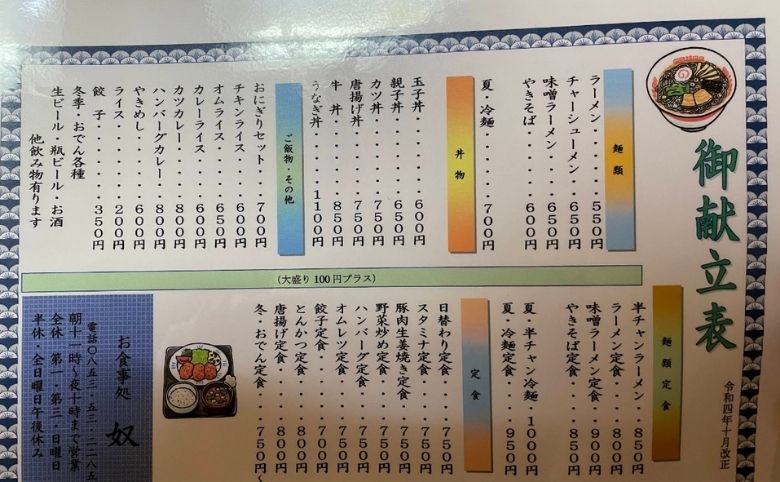 御献立表
令和四年十月改正
麺類
ラーメン・・・・５５０円
チャーシューメン・６５０円
味噌ラーメン・・・６５０円
やきそば・・・・・６００円
夏・冷麺・・・・・７００円
丼物
玉子丼・・・・・６００円
親子丼・・・・・６５０円
カツ丼・・・・・７５０円
唐揚げ丼・・・・７５０円
牛 丼・・・・・８５０円
うなぎ丼・・・・１１００円
ご飯物・その他
おにぎりセット・・７００円
チキンライス・・・６００円
オムライス・・・・６５０円
カレーライス・・・６００円
カツカレー・・・・８００円
ハンバーグカレー・８００円
やきめし・・・・・６００円
ライス・・・・・・２００円
餃 子・・・・・・３５０円
冬季・おでん各種
生ビール・瓶ビール・お酒
他飲み物有ります
(大盛り100円プラス)
麺類定食
半チャンラーメン・・８５０円
ラーメン定食・・・・８００円
味噌ラーメン定食・・９００円
やきそば定食・・・・８５０円
夏・半チャン冷麺・１０００円
夏・冷麺定食・・・・９５０円
定食
日替わり定食・・・７５０円
スタミナ定食・・・７５０円
豚肉生姜焼き定食・７５０円
野菜炒め定食・・・７５０円
ハンバーグ定食・・７５０円
オムレツ定食・・・７５０円
餃子定食・・・・・７００円
とんかつ定食・・・８００円
唐揚げ定食・・・・８００円
冬・おでん定食・・・７５０円～
お食事処 奴
電話０８５３・５３・２２８５
朝十一時～夜十時まで営業
全休 第一・第三・日曜日
半休・全日曜日午後休み